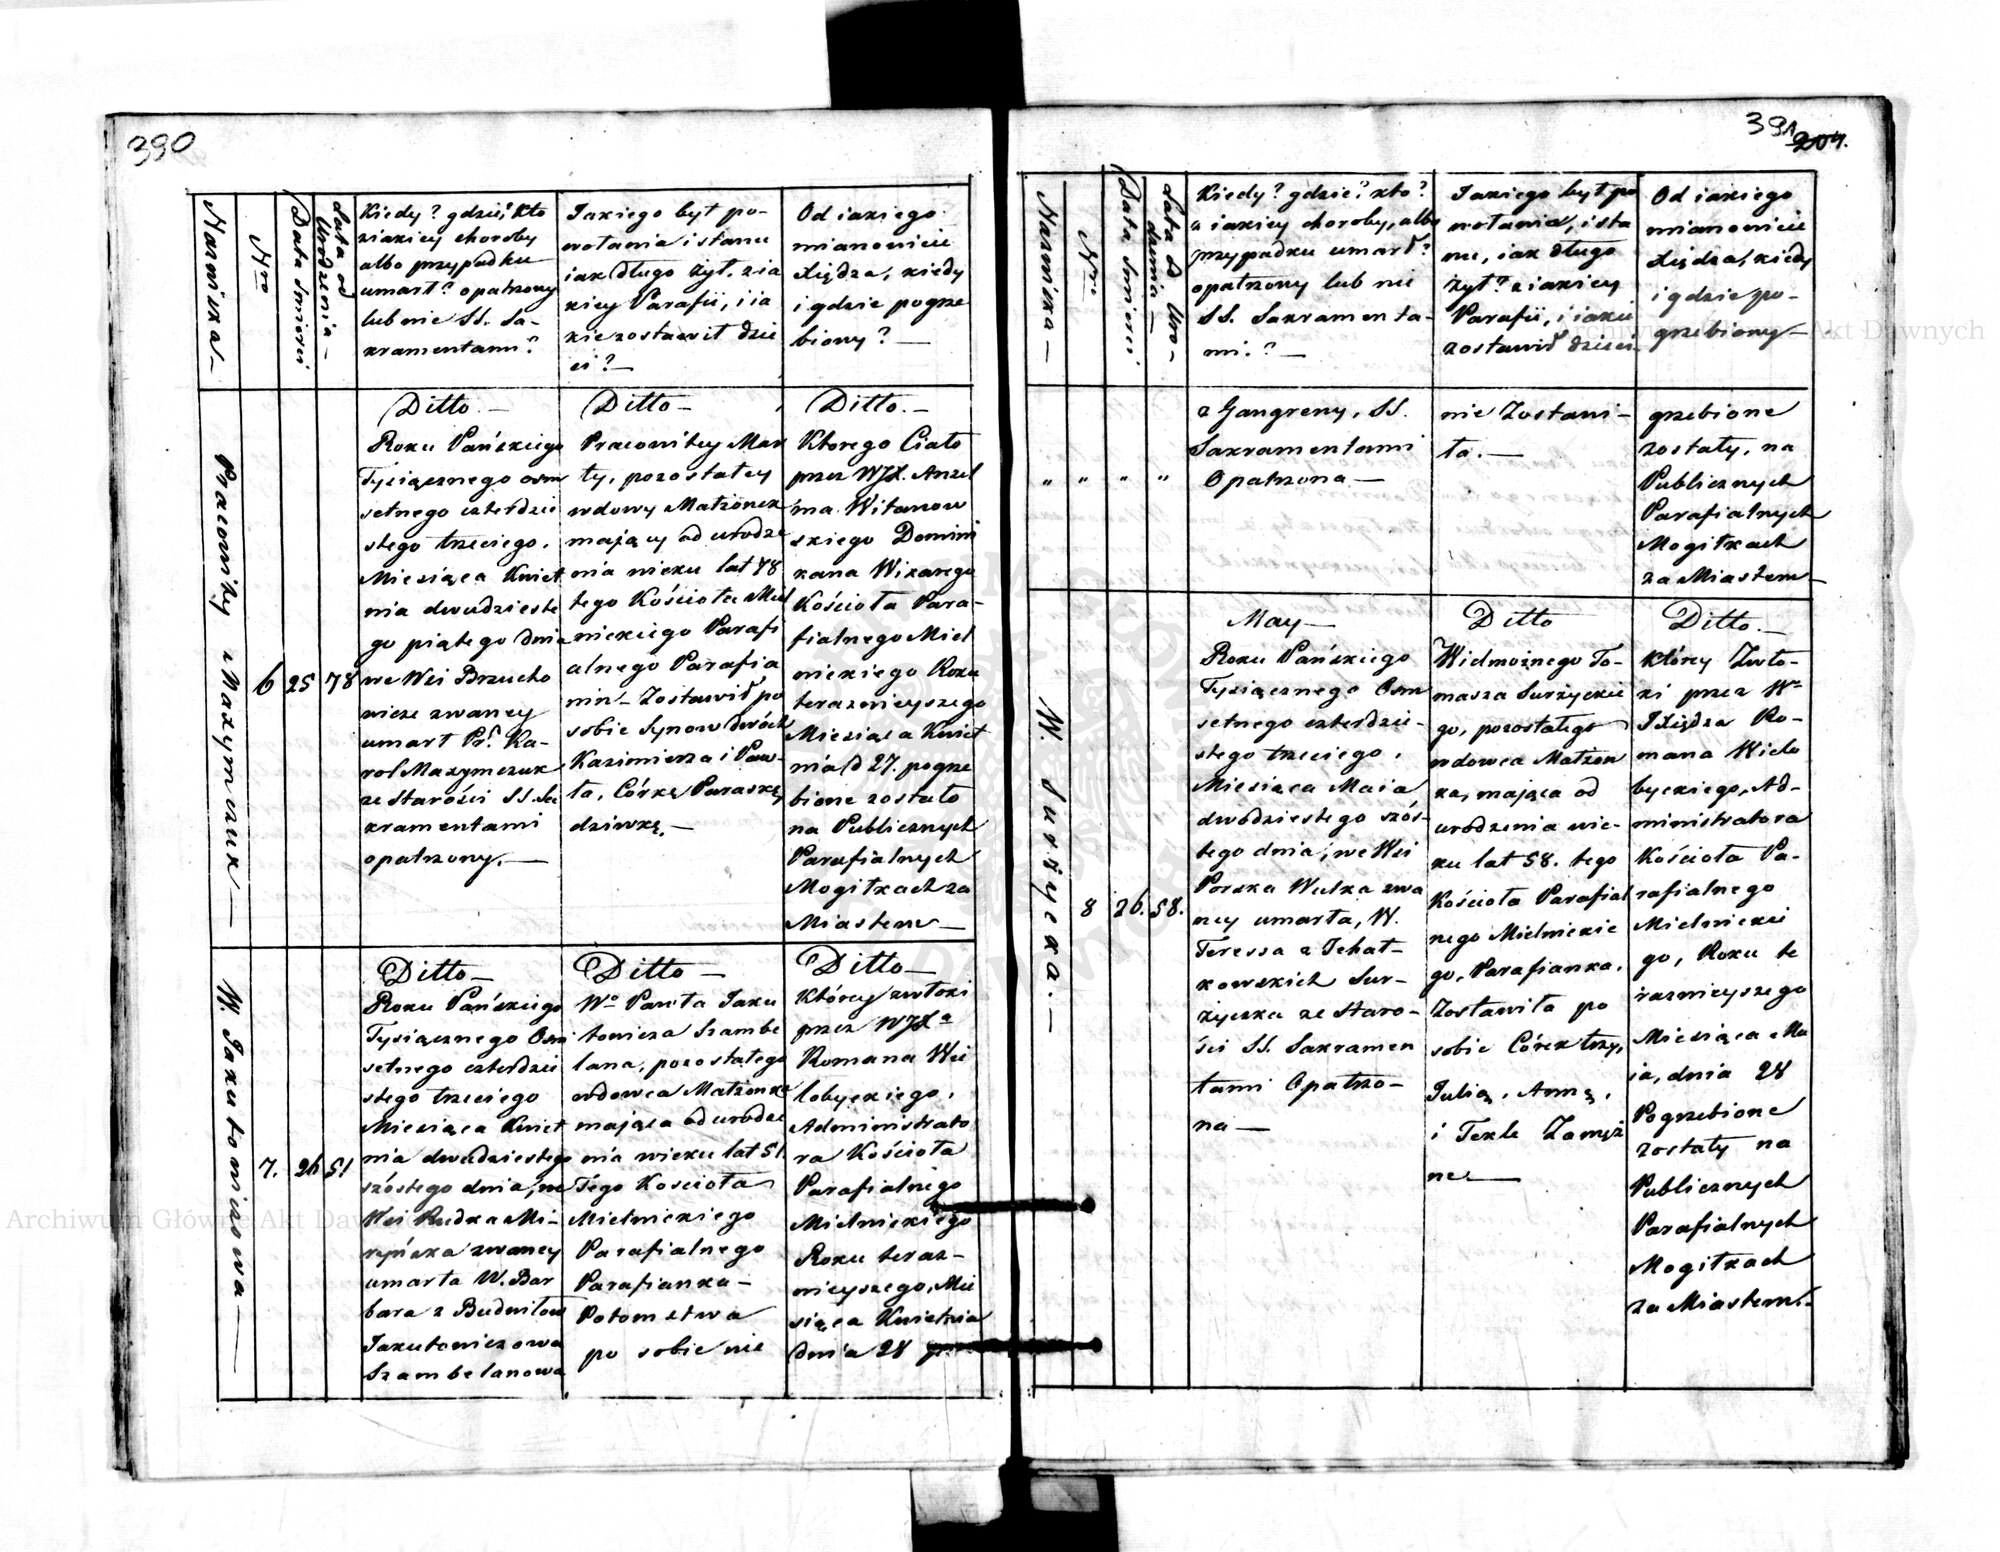 390
Nazwiska —
Nro
Data Smierci
Lata od
Urodzenia —
Kiedy? gdzie? kto
z iakiey choroby
albo przypadku
umarł? opatrzony
lub nie SS. Sa-
kramentami?
Jakiego był po-
wołania i stanu
iak długo żył, z ia
kiey Parafii, i ia
kie zostawił dzie
ci? —
Od iakiego
mianowicie
Xiędza, kiedy
i gdzie pogrze
biony? —
Pracowity Maxymczuk —
6
25
78
Ditto. —
Roku Pańskiego
Tysiącznego osm
setnego czterdzie
stego trzeciego,
Miesiąca Kwiet
nia dwudzieste
go piątego dnia
we Wsi Brzucho
wicze zwaney
umarł Pr. Ka-
rol Maxymczuk
ze Starości SS. Sa
kramentami
opatrzony. —
Ditto —
Pracowitey Mar
ty, pozostałey
wdowy Małżonek
maiący od urodze
nia wieku lat 78
tego Kościoła Miel
nickiego Parafi
alnego Parafia
nin — Zostawił po
sobie Synow dwóch
Kazimierza i Paw-
ła, Córkę Paraskę
dziwkę. —
Ditto. —
Ktorego Ciało
przez WJX. Anzel
ma Witanow
skiego Domini
kana Wikarego
Kościoła Para-
fialnego Miel
nickiego Roku
terazniejszego
Miesiąca Kwiet
nia d 27. pogrze
bione zostało
na Publicznych
Parafialnych
Mogiłkach za
Miastem —
W. Jakutowiczowa —
7.
26
51
Ditto —
Roku Pańskiego
Tysiącznego Osm
setnego czterdzie
stego trzeciego
Miesiąca Kwiet
nia dwudziestego
szóstego dnia, we
Wsi Rudka Mi-
ryńska zwaney
umarła W. Bar
bara z Budwiłow
Jakutowiczowa
Szambelanowa
Ditto —
Wo Pawła Jaku
towicza Szambe
lana, pozostałego
wdowca Małżonka
maiąca od urodze
nia wieku lat 51.
Tego Kościoła
Mielnickiego
Parafialnego
Parafianka —
Potomstwa
po sobie nie
Ditto —
Którey zwłoki
przez WJXa
Romana Wie
lobyckiego,
Administrato
ra Kościoła
Parafialnego
Mielnickiego
Roku teraz-
nieyszego, Mie
siąca Kwietnia
dnia 28
391
204.
Nazwiska —
Nro
Data Smierci
Lata od Uro-
dzenia —
Kiedy? gdzie? kto?
z iakiey choroby, albo
przypadku umarł?
opatrzony lub nie
SS. Sakramenta-
mi.? —
Jakiego był po
wołania, i sta
nu, iak długo
żył? z iakiey
Parafii, i iakie
zostawił dzieci
Od iakiego
mianowicie
Xiędza, kiedy
i gdzie po-
grzebiony —
" " " "
z Gangreny, SS.
Sakramentami
Opatrzona —
nie Zostawi-
ła. —
grzebione
zostały, na
Publicznych
Parafialnych
Mogiłkach
za Miastem —
W. Surżycka. —
8
26.
58.
May —
Roku Pańskiego
Tysiącznego Osm
setnego czterdzie-
stego trzeciego,
Miesiąca Maia,
dwódziestego szós-
tego dnia, we Wsi
Porska Wulka zwa
ney umarła, W.
Teressa z Jehał-
kowskich Sur-
życka ze Staro-
ści SS. Sakramen
tami Opatrzo-
na —
Ditto
Wielmożnego To-
masza Surżyckie
go, pozostałego
wdowca Małżon
ka, maiąca od
urodzenia wie-
ku lat 58. tego
Kościoła Parafial
nego Mielnickie
go, Parafianka.
Zostawiła po
sobie Córek trzy,
Julią, Annę,
i Tekle Zamęż
ne —
Ditto. —
którey Zwło-
ki przez Wo
JXiędza Ro-
mana Wielo
byckiego, Ad-
ministratora
Kościoła Pa-
rafialnego
Mielnickie
go, Roku te
raznieyszego
Miesiąca Ma
ia, dnia 28
Pogrzebione
zostały na
Publicznych
Parafialnych
Mogiłkach
za Miastem. —
Archiwum Główne Akt Dawnych
Archiwum Główne Akt Dawnych